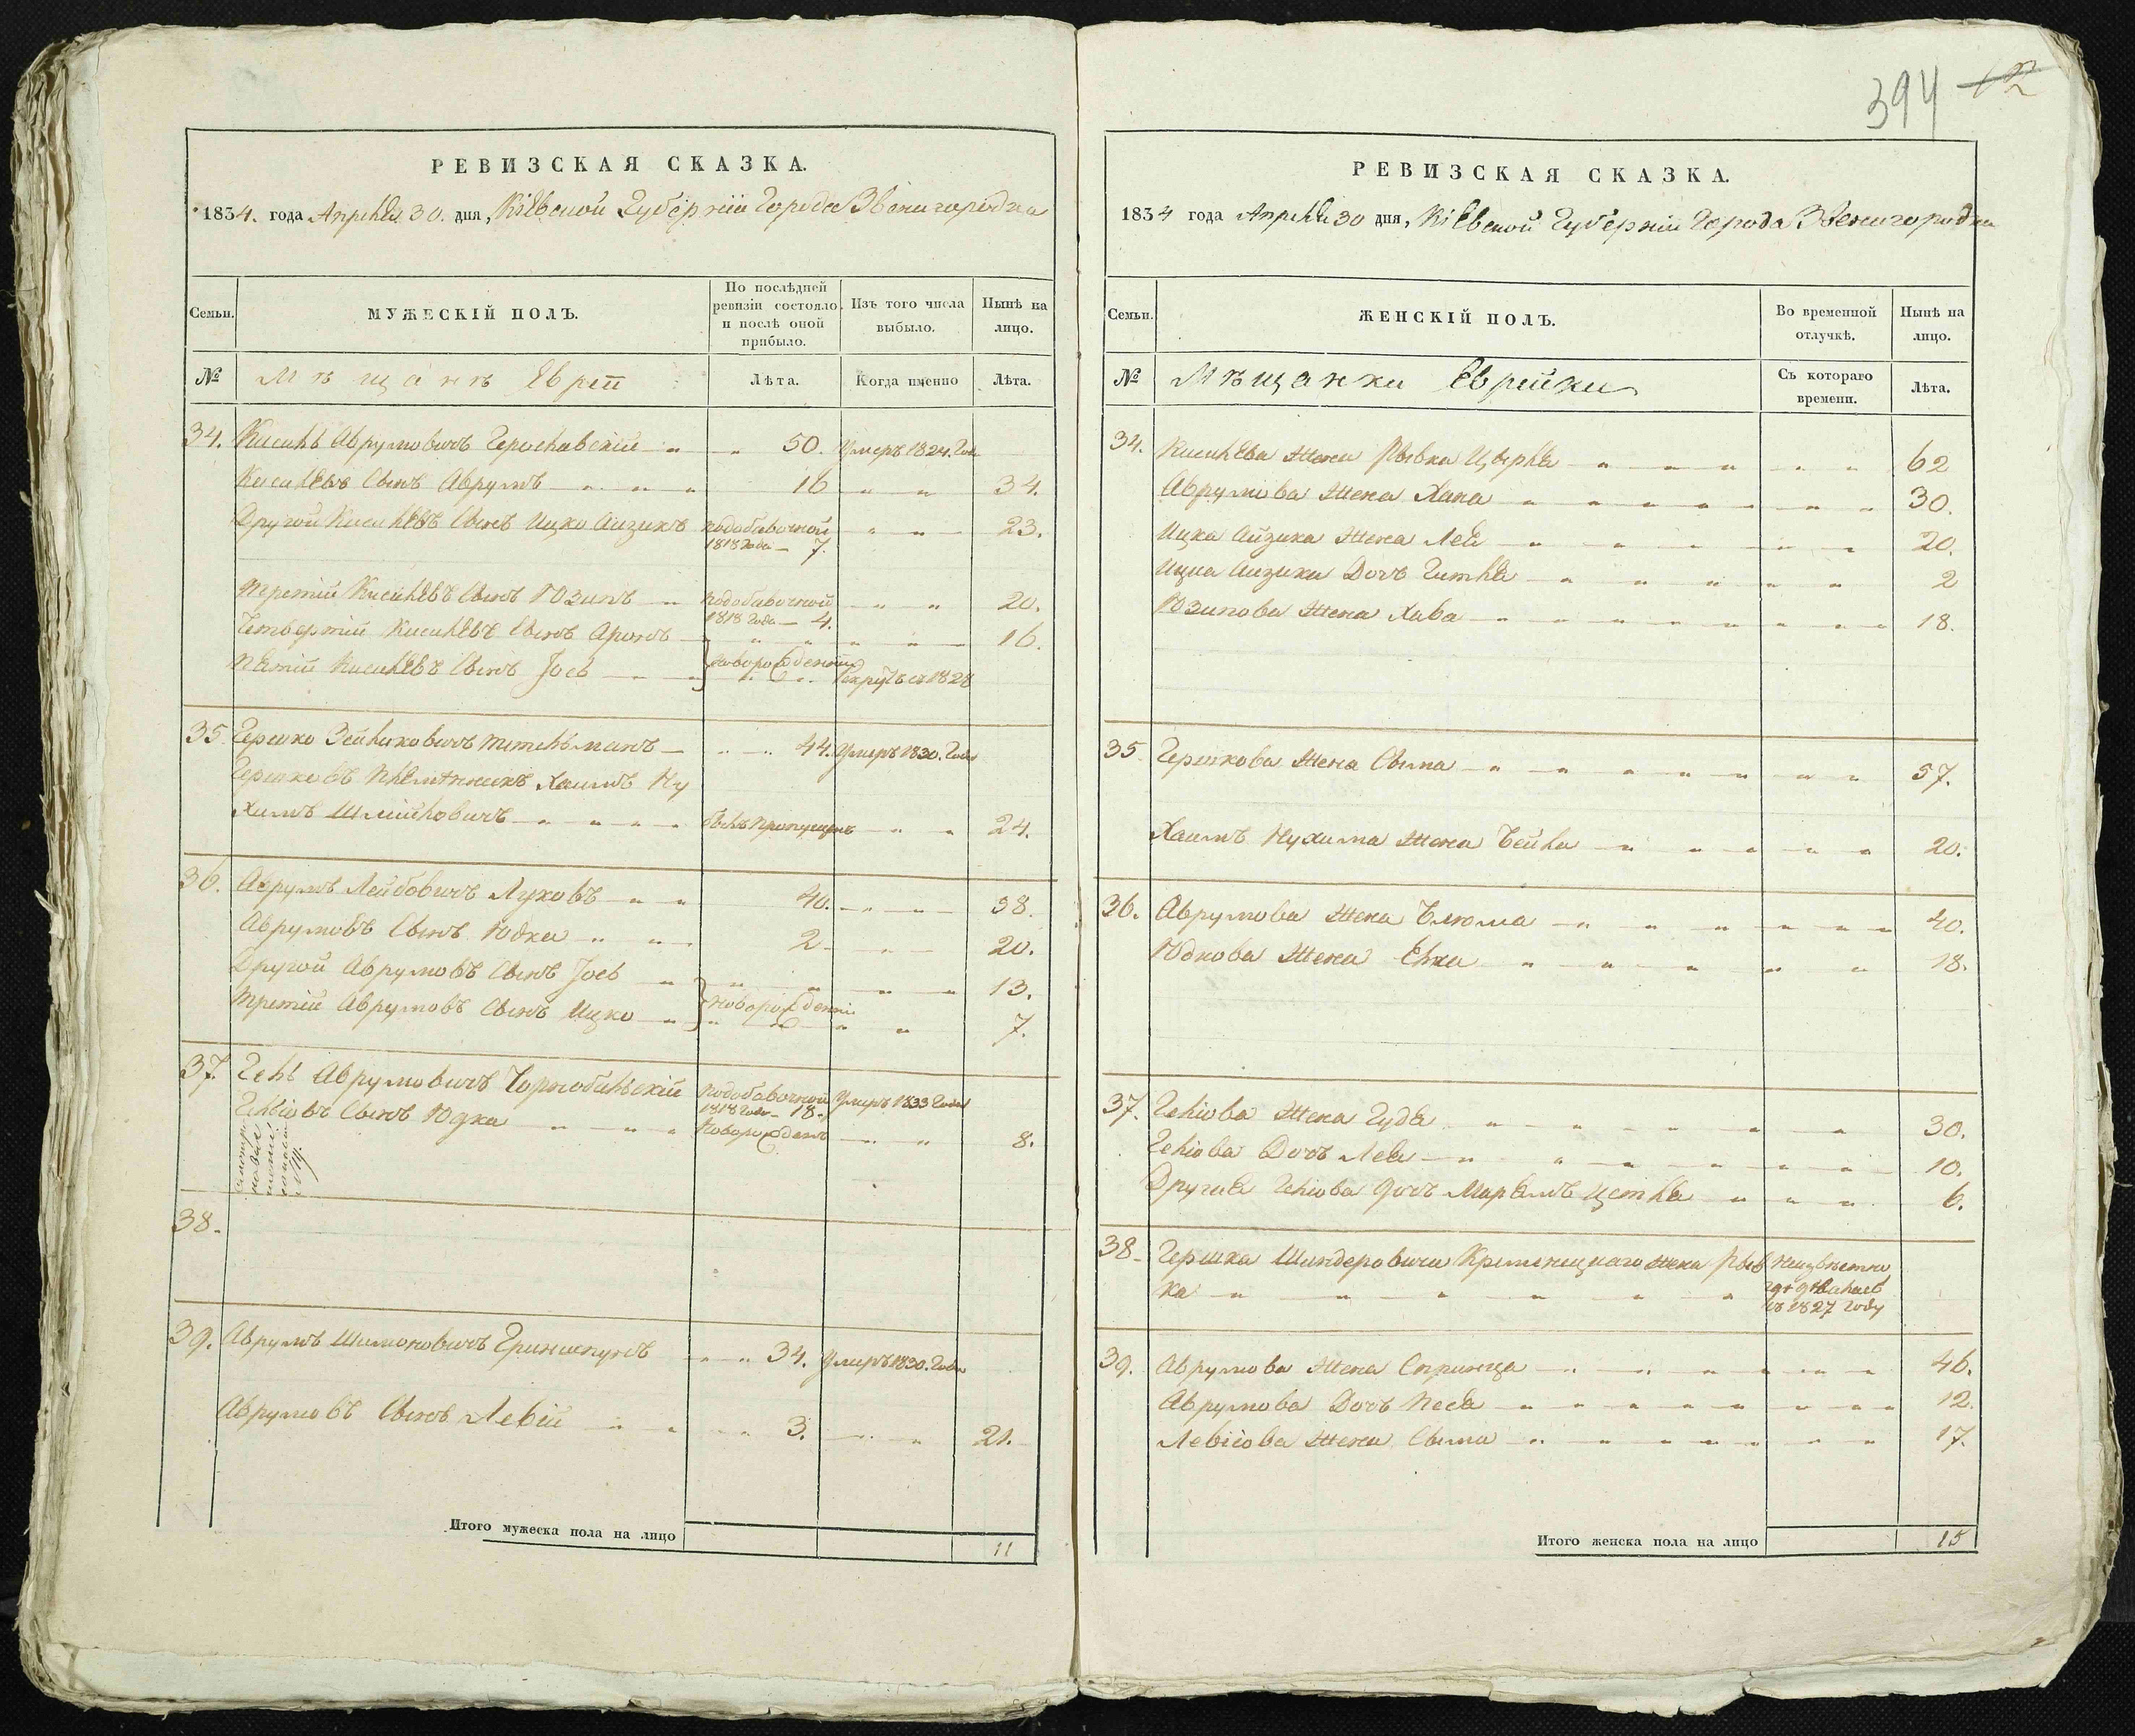 394 12
РЕВИЗСКАЯ СКАЗКА.
1834. года Апреля 30. дня, Кіевской Губерніи Города Звенигородка
Семьи.
МУЖЕСКІЙ ПОЛЪ.
По послѣдней ревизіи состояло и послѣ оной прибыло.
Изъ того числа выбыло.
Нынѣ на лицо.
№
Мѣщанъ Евреи
Лѣта.
Когда именно
Лѣта.
34. Кисиль Аврумовичъ 50. Умеръ 1824. Года
Кисилевъ Сынъ Аврумъ 16 34.
Другой Кисилевъ Сынъ Ицко Айзикъ подобавочной 1818 Года 7. 23.
Третій Кисилевъ Сынъ Юзипъ подобавочной 1818 Года 4. 20.
Четвертій Кисилевъ Сынъ Аронъ 16.
Пятій Кисилевъ Сынъ Іось новорожденніи 1828
35. Гершко Зейликовичъ Тительманъ 44. Умеръ 1830. Года
Гершковъ Племѣнникъ Хаимъ Ну
Химъ Шлиойловичъ Былъ Пропущенъ 24.
36. Аврумъ Лейбовичъ Луковъ 40. 58.
Аврумовъ Сынъ Юдка 2 20.
Другой Аврумовъ Сынъ Іось 13.
Третій Аврумовъ Сынъ Ицко новорожденніи 7.
37. Гель Аврумовичъ Чорнобильскій подобавочной 1818 Года 18. Умеръ 1833 Года
Геліовъ Сынъ Юдка Новорожденъ 8.
38.
39. Аврумъ Шимоновичъ Гриншпунъ 34. Умеръ 1830. Года
Аврумовъ Сынъ Левій 3. 21.
Итого мужеска пола на лицо 11
РЕВИЗСКАЯ СКАЗКА.
1834 года Апреля 30 дня, Кіевской Губерніи Города Звенигородки
Семьи.
ЖЕНСКІЙ ПОЛЪ.
Во временной отлучкѣ.
Нынѣ на лицо.
№
Мѣщанки Еврейки
Съ котораго времени.
Лѣта.
34. Кисилева Жена Рывка Цырля 62
Аврумова Жена Хана 30.
Ицка Айзика Жена Лея 20.
Ицка Айзика Дочъ Гитля 2
Юзипова Жена Хава 18.
35. Гершкова Жена Сыма 57.
Хаимъ Нухима Жена Бейла 20.
36. Аврумова Жена Блюма 40.
Юдкова Жена Елка 18.
37. Геліова Жена Гудя 30.
Геліова Дочъ Лея 10.
Другая Геліова дочъ Марямъ Цетля 6.
38. Гершка Шандеровича Кременецкаго жена Рыв
ка Неизвѣстно гдѣ дѣвалась въ 1827 Году
39. Аврумова Жена Спринца 46.
Аврумова Дочъ Песя 12.
Левіова Жена Сыма 17.
Итого женска пола на лицо 15